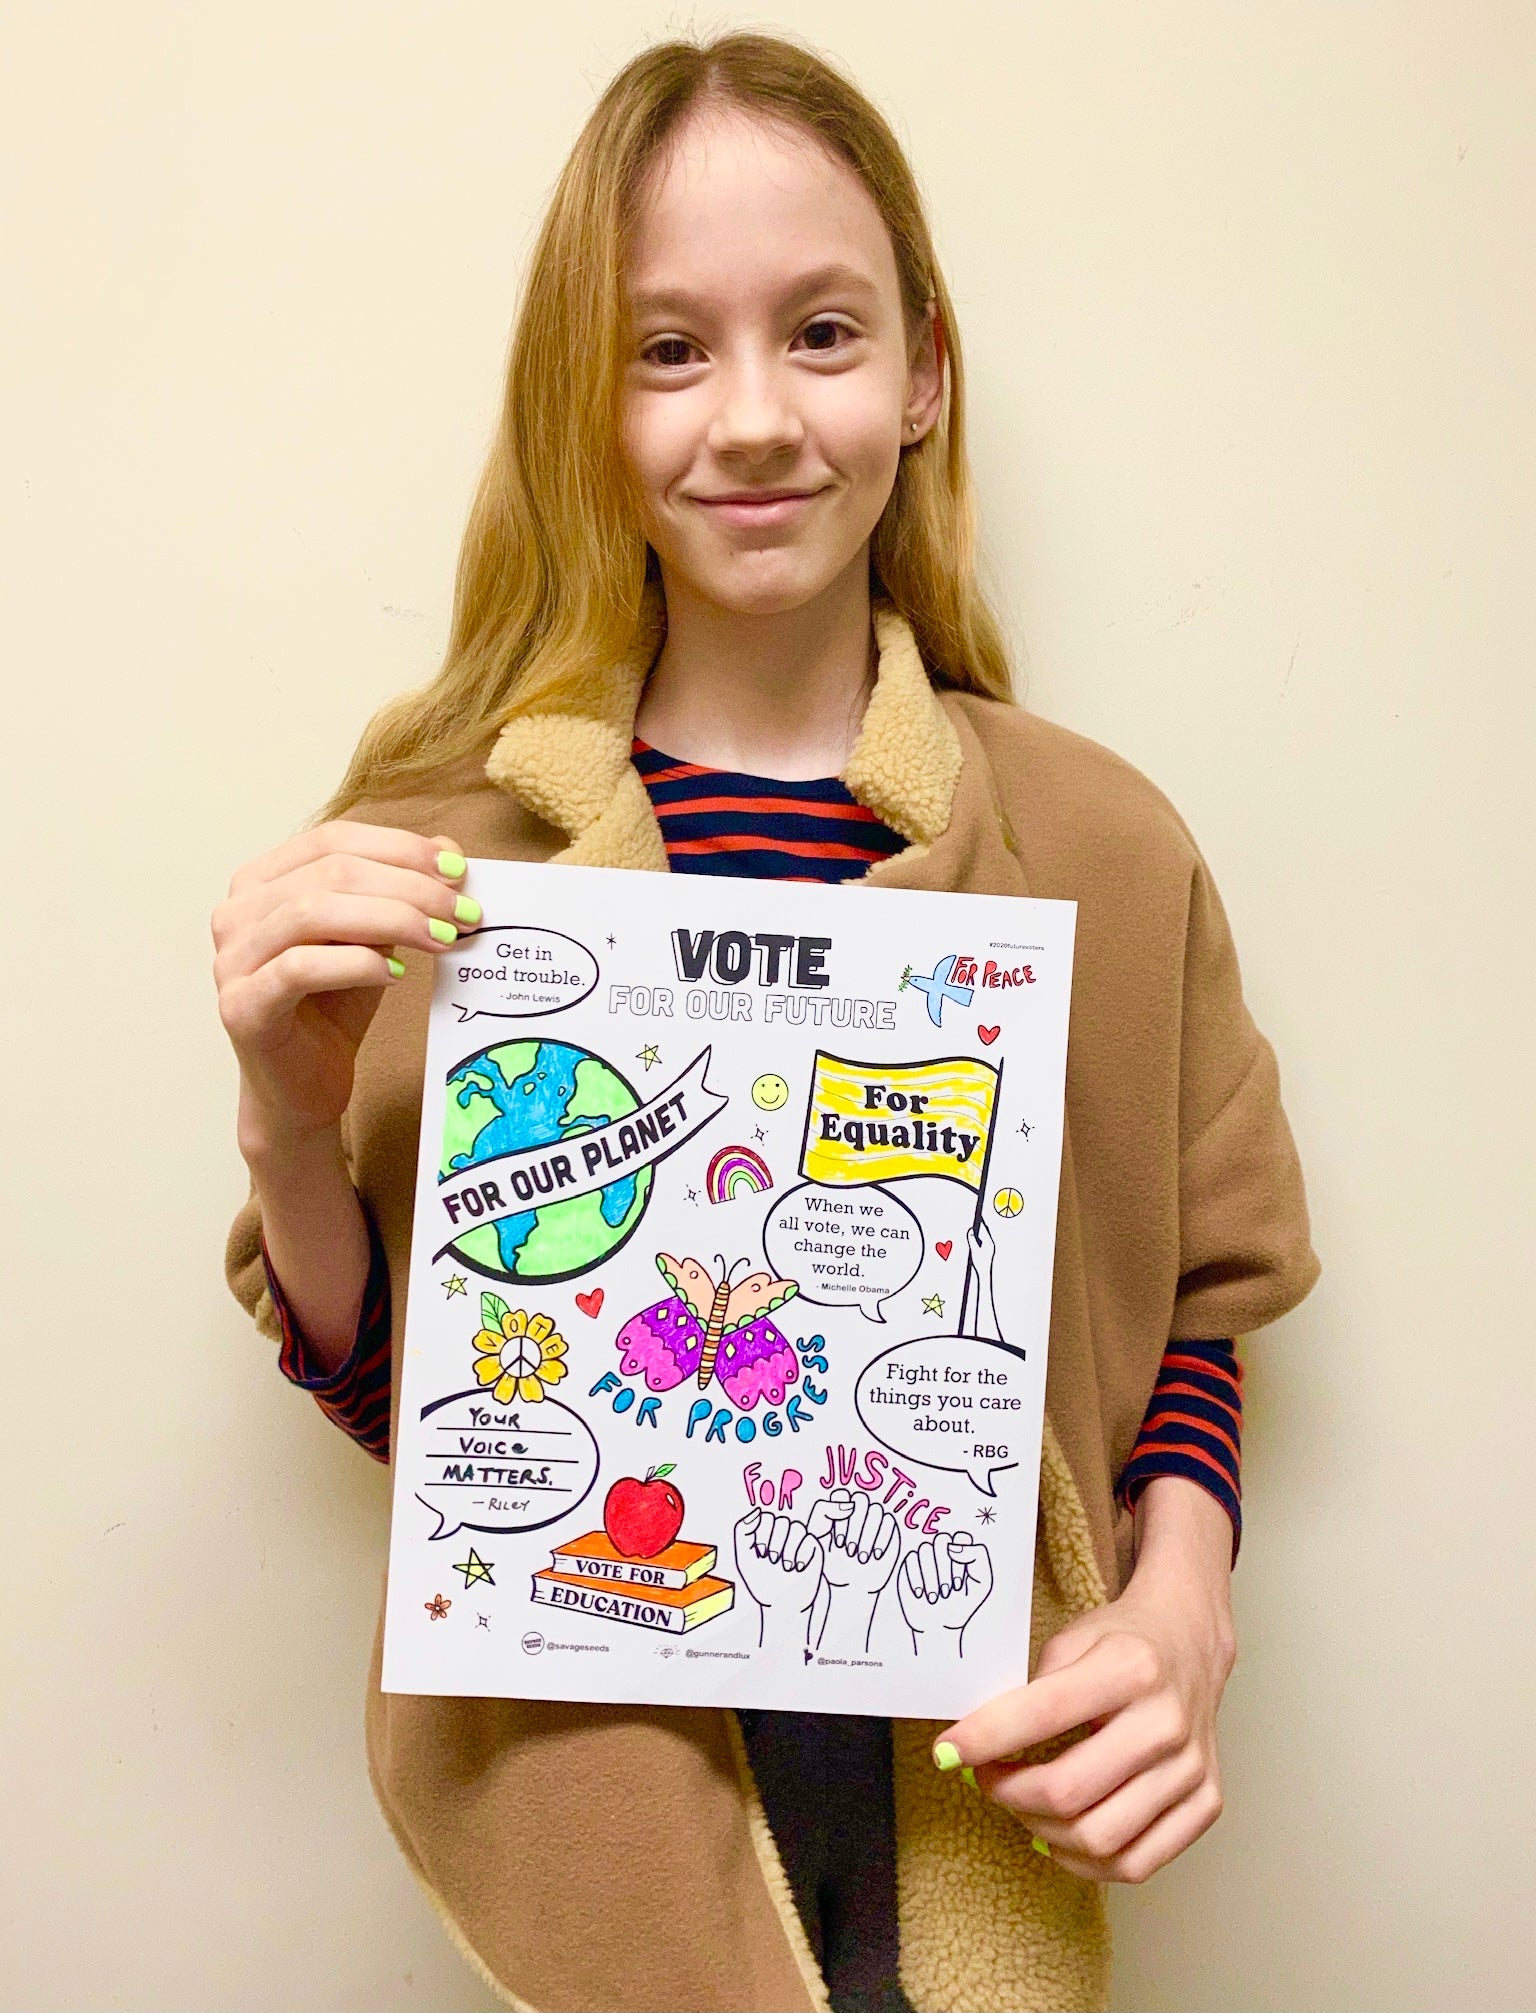 Get in
good trouble.
- John Lewis
VOTE
FOR OUR FUTURE
#2020futurevoters
FOR PEACE
FOR OUR PLANET
For
Equality
When we
all vote, we can
change the
world.
- Michelle Obama
VOTE
FOR PROGRESS
Fight for the
things you care
about.
- RBG
YOUR
VOICe
MATTERS.
- RILeY
FOR JUSTiCE
VOTE FOR
EDUCATION
@savageseeds
@gunnerandlux
@paola_parsons